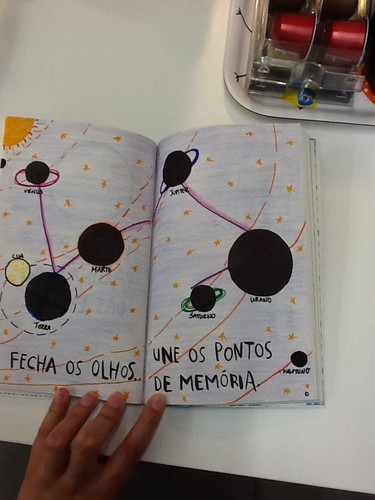 VÉNUS
LUA
MARTE
TERRA
FECHA OS OLHOS.
JÚPITER
URANO
SATURNO
NEPTUNO
UNE OS PONTOS
DE MEMÓRIA.